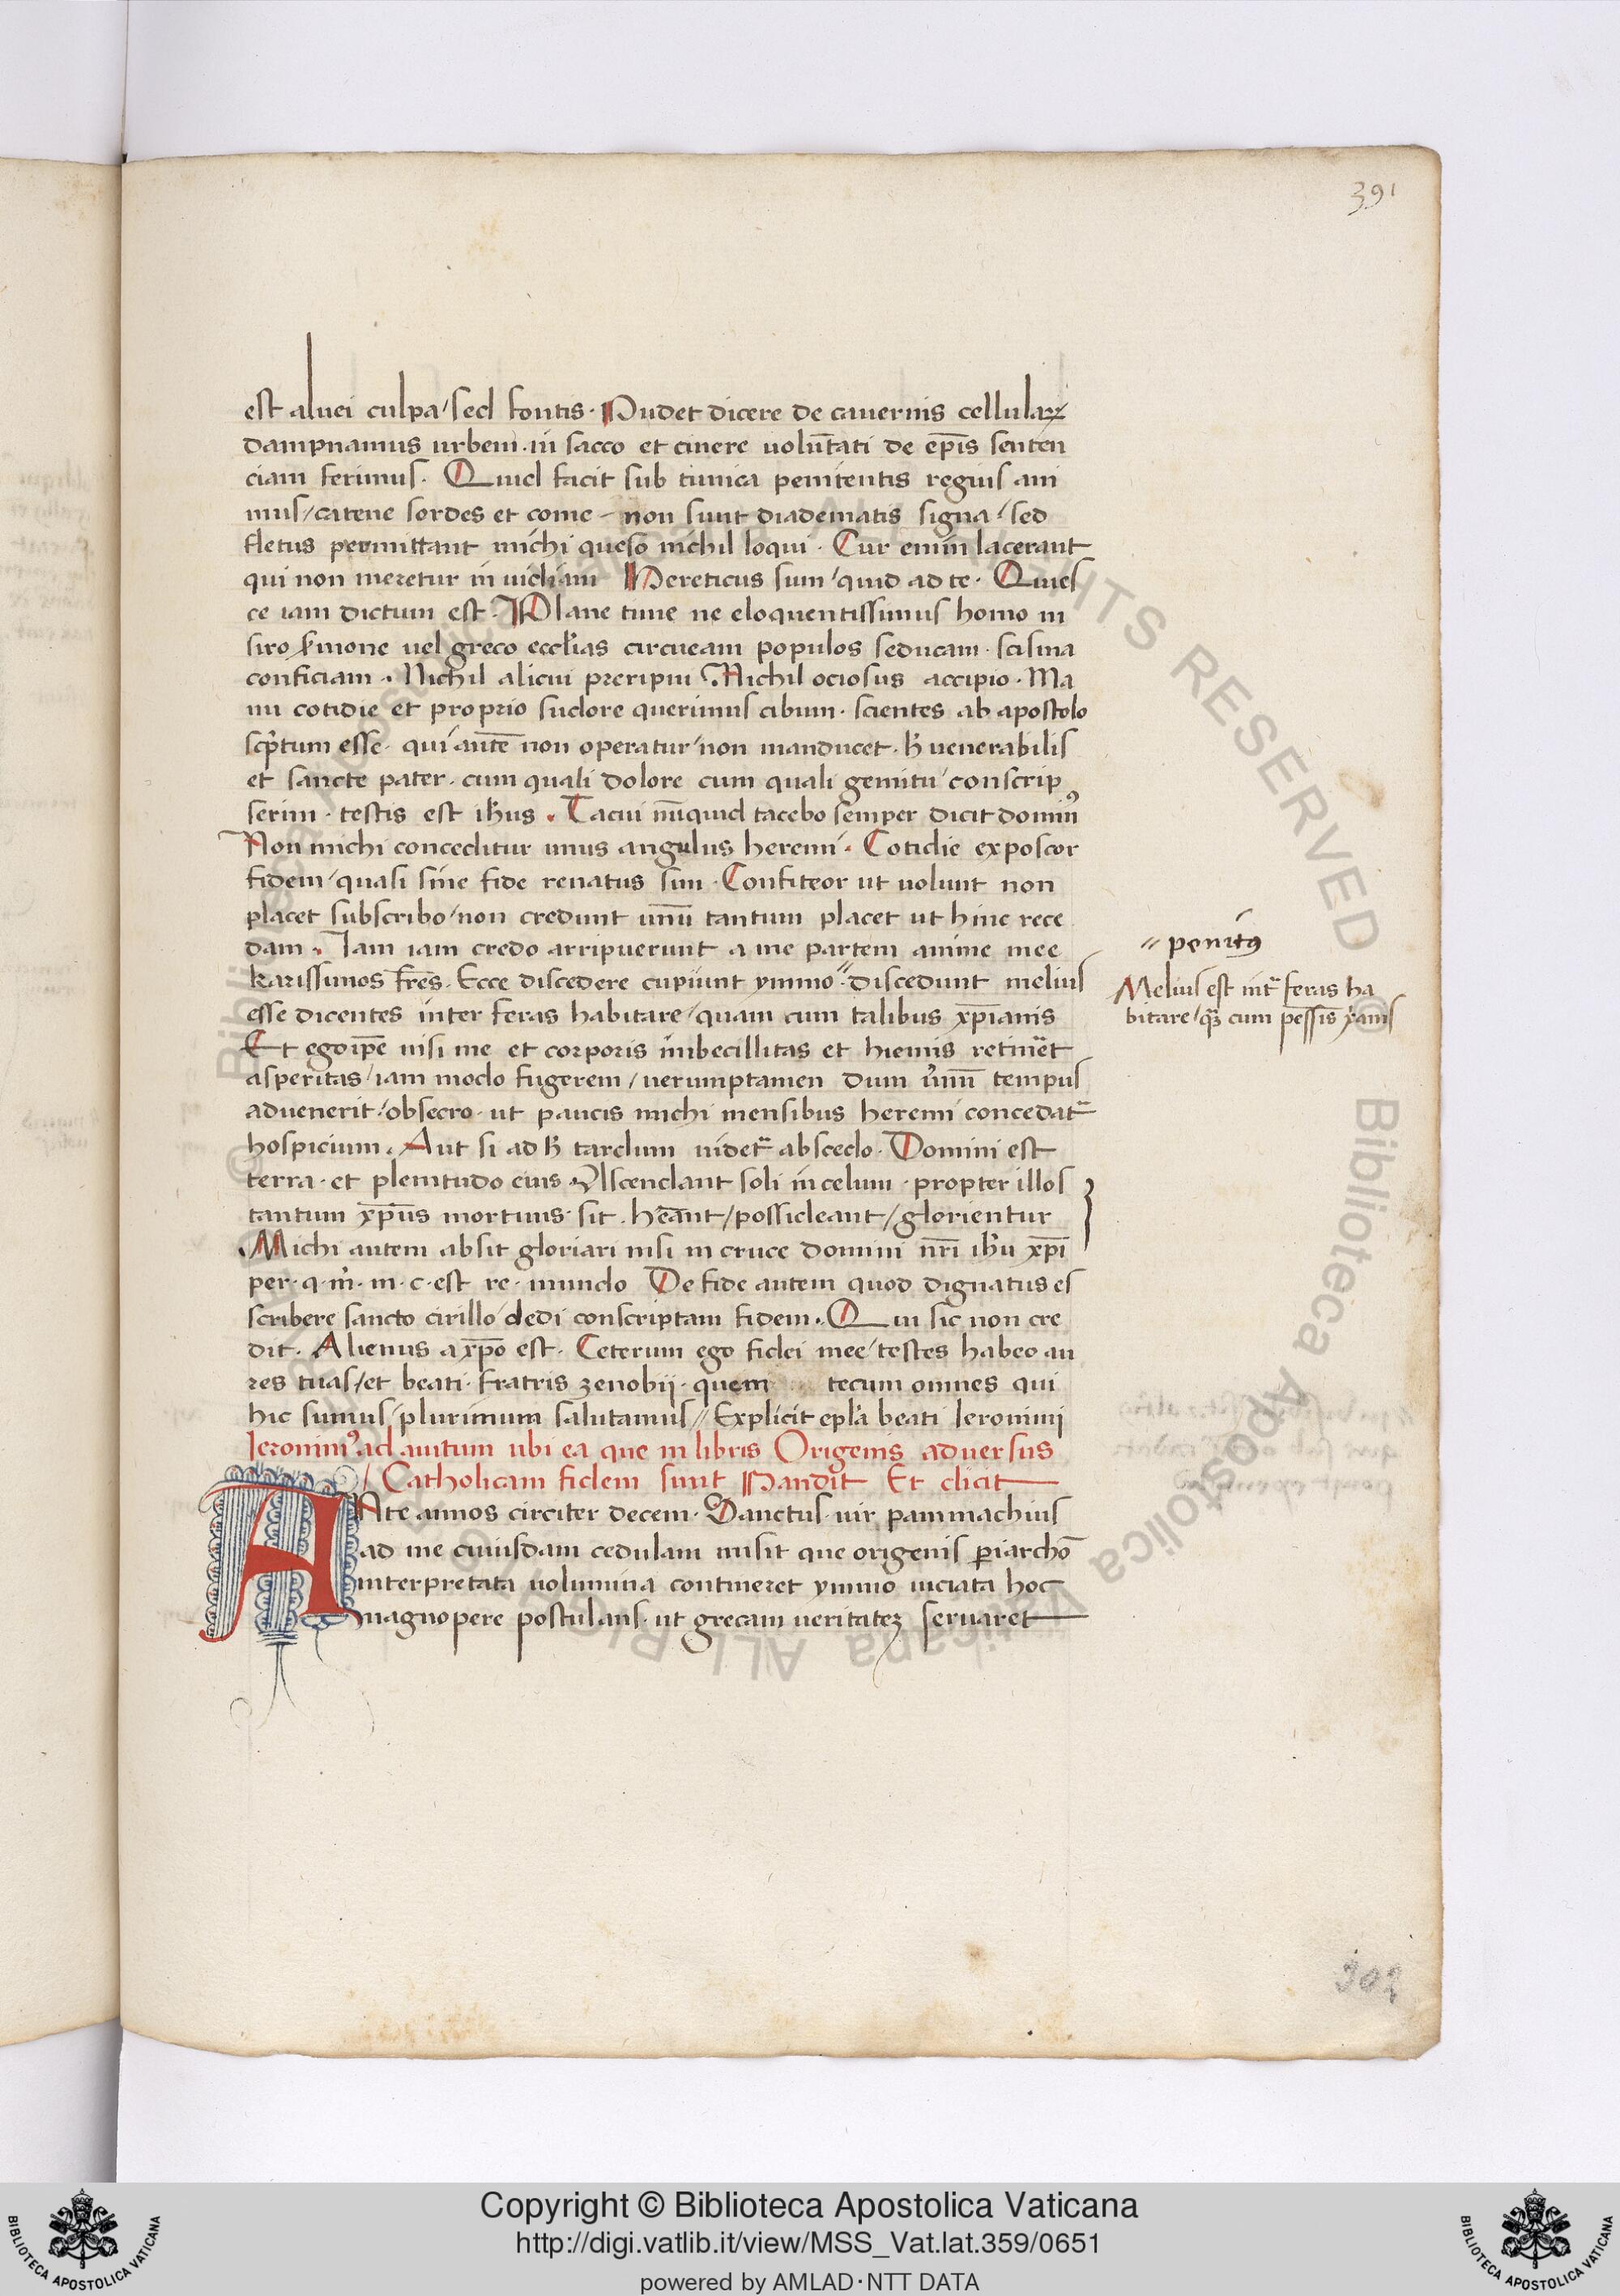 391
est aluei culpa / sed fontis. Pudet dicere de cauernis cellulaꝝ
dampnamus urbem. in sacco et cinere uolūtati de ep̄is senten
ciam ferimus. Quid facit sub tunica penitentis regius ani
mus / catene sordes et come - non sunt diadematis signa / sed
fletus permittant michi queso nichil loqui. Cur enim lacerant
qui non meretur inuidiam Hereticus sum / quid ad te. Quies
ce iam dictum est. Plane time ne eloquentissimus homo in
siro s̄mone uel greco eccl̄ias circueam populos seducam. scisma
conficiam. Nichil alicui preripui. Nichil ociosus accipio. Ma
nu cotidie et proprio sudore querimus cibum. scientes ab apostolo
scp̄tum esse. qui autē non operatur / non manducet. h̄ uenerabilis
et sancte pater. cum quali dolore cum quali gemitu conscrip
serim. testis est ih̄us. Tacui nūquid tacebo semper dicit dominꝰ
Non michi conceditur unus angulus heremi. Cotidie exposcor
fidem / quasi sine fide renatus sim. Confiteor ut uolunt non
placet subscribo / non credunt unū tantum placet ut hinc rece
dam. Iam iam credo arripuerunt a me partem anime mee
karissimos fr̄es. Ecce discedere cupiunt ymmo // discedunt melius
esse dicentes inter feras habitare / quam cum talibus xp̄ianis
Et ego ip̄e nisi me et corporis imbecillitas et hiemis retinēt
asperitas / iam modo fugerem / uerumptamen dum u̓nū tempus
aduenerit / obsecro. ut paucis michi mensibus heremi concedat᷑
hospicium. Aut si ad h̄ tardum uidet᷑ abscedo. Domini est
terra. et plenitudo eius. Ascendant soli in celum. propter illos
tantum xp̄us mortuus sit. hēant / possideant / glorientur
Michi autem absit gloriari nisi in cruce domini nr̄i ih̄u xp̄i
per. q. m̓. m. c. est re. mundo De fide autem quod dignatus es
scribere sancto cirillo dedi conscriptam fidem. Qui sic non cre
dit. Alienus a xp̄o est. Ceterum ego fidei mee / testes habeo au
res tuas / et beati. fratris zenobii. quem tecum omnes qui
hic sumus / plurimum salutamus // Explicit epl̄a beati Ieronimi
Ieronimꝰ ad auitum ubi ea que in libris Origenis aduersus
Catholicam fidem sunt Pandit Et dicit
ANte annos circiter decem. Sanctus uir pammachius
ad me cuiusdam cedulam misit que origenis ꝑiarchō
interpretata uolumina contineret ymmo uiciata hoc
magnopere postulans. ut grecam ueritateꝫ seruaret
// penitꝰ
Melius est int᷑ feras ha
bitare / qꝫ cum pessis̄ xanis
Copyright © Biblioteca Apostolica Vaticana
http://digi.vatlib.it/view/MSS_Vat.lat.359/0651
powered by AMLAD·NTT DATA
BIBLIOTECA APOSTOLICA VATICANA
BIBLIOTECA APOSTOLICA VATICANA